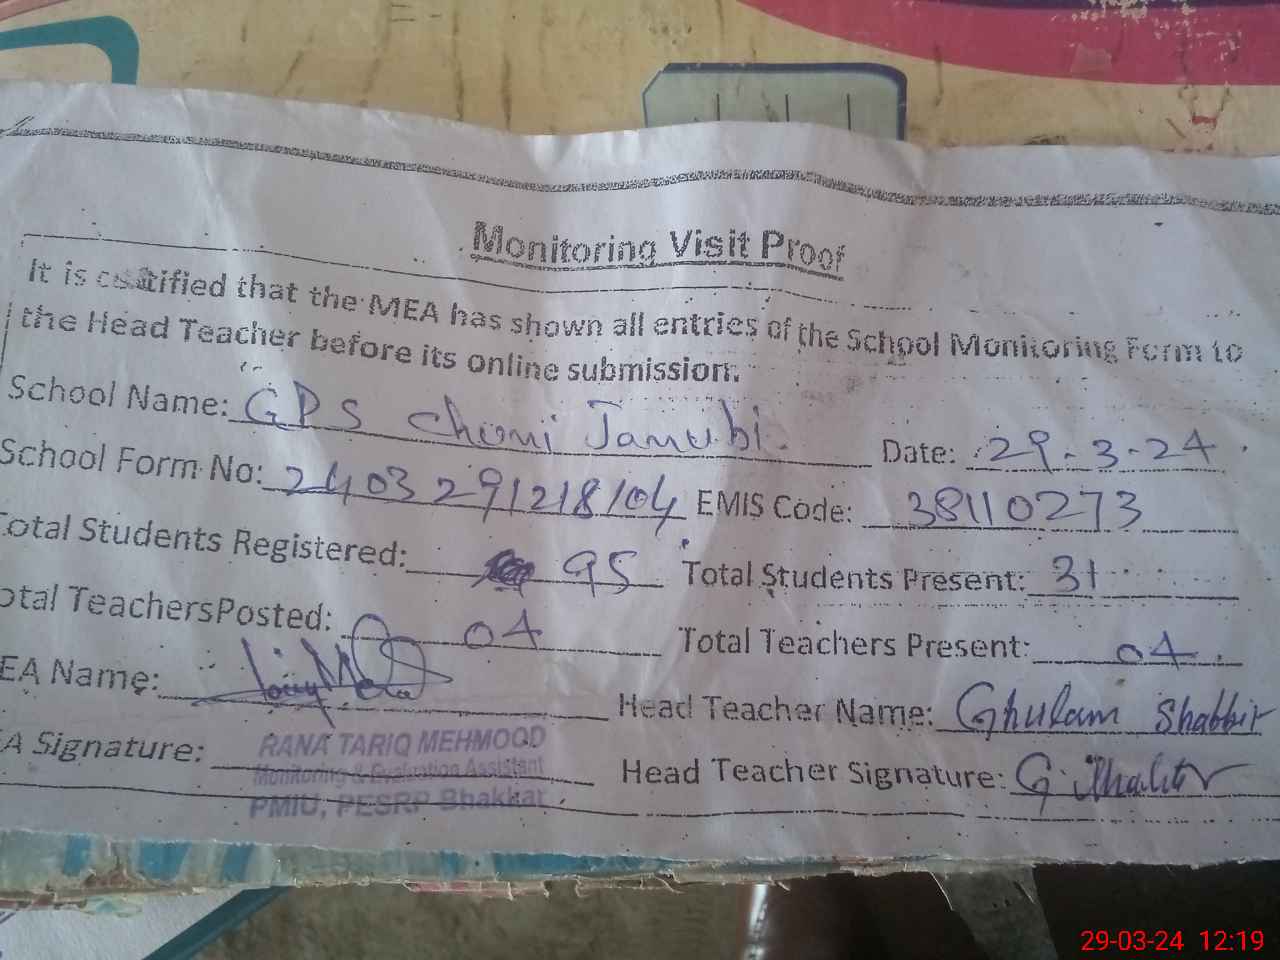 Monitoring Visit Proof
It is certified that the MEA has shown all entries of the School Monitoring Form to
the Head Teacher before its online submission.
School Name: GPS Chuni Janubi. Date: 29-3-24
School Form No: 2403291218104 EMIS Code: 38110273
otal Students Registered: 95 Total Students Present: 31
otal TeachersPosted: 04 Total Teachers Present: 04
EA Name: Head Teacher Name: Ghulam Shabbir
A Signature: Head Teacher Signature:
RANA TARIQ MEHMOOD
Monitoring & Evaluation Assistant
PMIU, PESRP Bhakkar
29-03-24 12:19